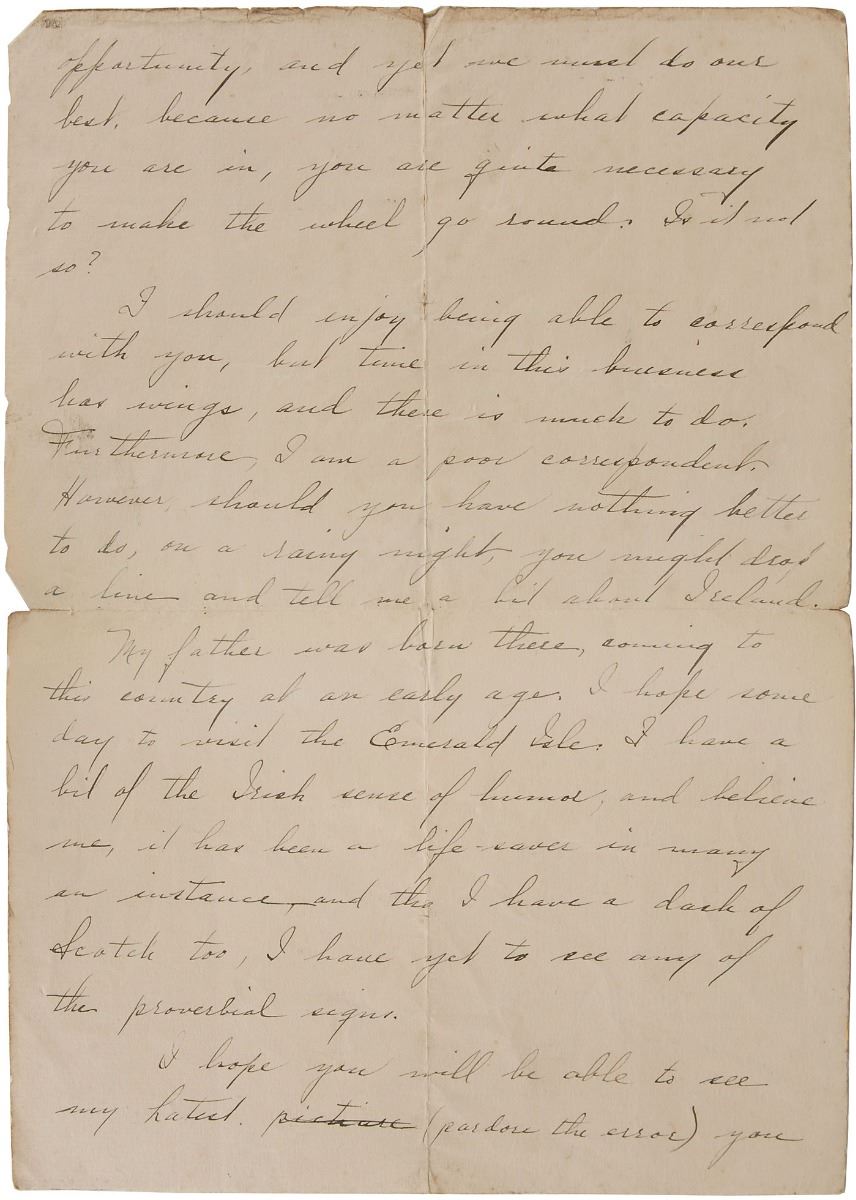 opportunity, and yet we must do our
best, because no matter what capacity
you are in, you are quite necessary
to make the wheel go round. Is it not
so?
I should enjoy being able to correspond
with you, but time in this business
has wings, and there is much to do.
Furthermore, I am a poor correspondent.
However, should you have nothing better
to do, on a rainy night, you might drop
a line and tell me a bit about Ireland.
My father was born there, coming to
this country at an early age. I hope some
day to visit the Emerald Isle. I have a
bit of the Irish sense of humor, and believe
me, it has been a life-saver in many
an instance, and tho I have a dash of
Scotch too, I have yet to see any of
the proverbial signs.
I hope you will be able to see
my latest. picture (pardon the error) you